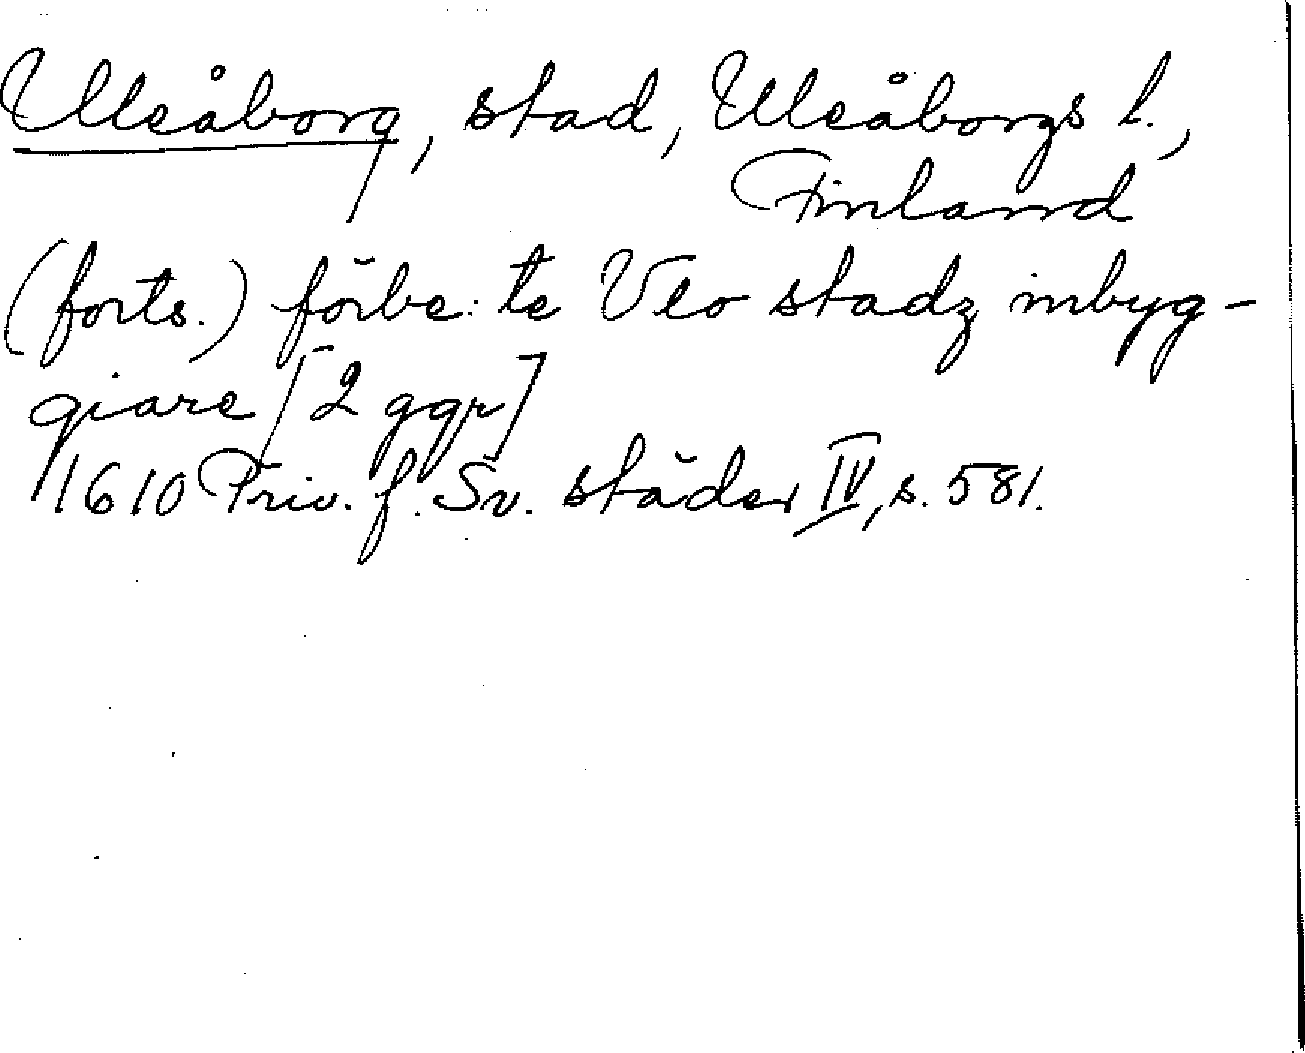 Uleåborg, stad, Uleåborgs l.,
Finland
(forts.) förbe:te Vlo stadz inbyg-
giare [2 ggr]
1610 Priv. f. Sv. städer IV, s. 581.